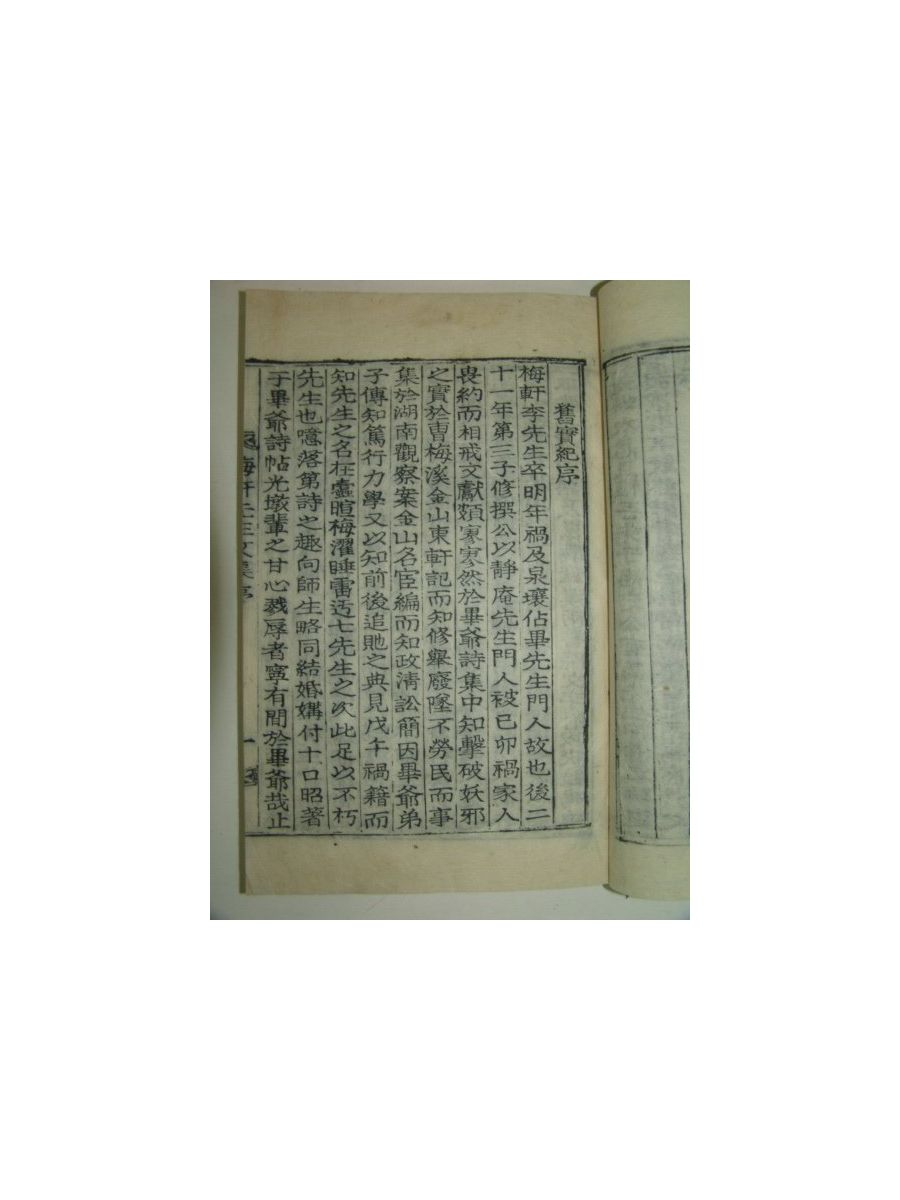 舊實紀序
梅軒李先生卒明年禍及泉壤佔畢先生門人故也後二
十一年第三子修撰公以靜庵先生門人被已卯禍家人
畏約而相戒文獻類寥寥然於畢爺詩集中知擊破妖邪
之實於曺梅溪金山東軒記而知修舉廢墜不勞民而事
集於湖南觀察案金山名宦編而知政淸訟簡因畢爺弟
子傳知篤行力學又以知前後追貤之典見戊午禍籍而
知先生之名在蠹暄梅濯睡雷迃七先生之次此足以不朽
先生也噫落第詩之趣向師生略同結婚媾付十口昭著
于畢爺詩帖光墩輩之甘心戮辱者寧有間於畢爺哉止
梅軒先生文集序
一